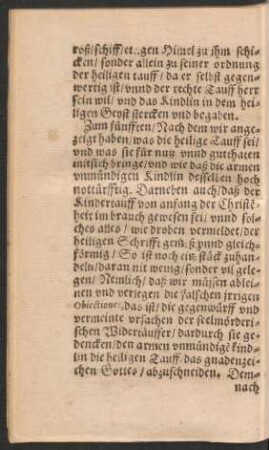 roß/schiff/et..gen Himel zu jhm schi-
cken/sonder allein zu seiner ordnung
der heiligen tauff/da er selbst gegen-
wertig ist/vnnd der rechte Tauff herr
sein wil/vnd das Kindlin in dem hei-
ligen Geyst stercken vnd begaben.
Zum fünfften/Nach dem wir ange-
zeigt haben/was die heilige Tauff sei/
vnd was sie für nutz vnnd gutthaten
mitsich bringe/vnd wie daß die armen
vnmündigen Kindlin dessellen hoch
nottürfftig. Darneben auch/daß der
Kindertauff von anfang der Christē-
heit im brauch gewesen sei/vnnd sol-
ches alles/wie droben vermeldet/der
heiligen Schrifft gemeß vnnd gleich-
förmig/So ist noch ein stück zuhan-
deln/daran nit wenig/sonder vil gele-
gen/Nemlich/daß wir müssen ablei-
nen vnd verjegen die falschen jrrigen
Obiectione, das ist/die gegenwürff vnd
vermeinte vrsachen der seelmörderi-
schen Widertäuffer/dardurch sie ge-
dencken/den armen vnmündigē kind-
lin die heiligen Tauff das gnadenzei-
chen Gottes/abzuschneiden. Dem-
nach